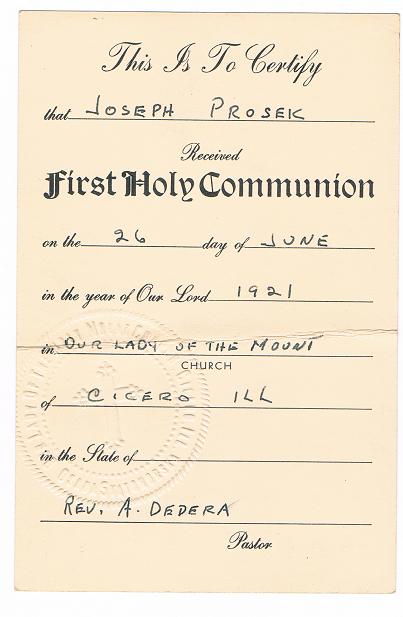 This Is To Certify
that JOSEPH PROSEK
Received
First Holy Communion
on the 26 day of JUNE
in the year of Our Lord 1921
in OUR LADY OF THE MOUNT
CHURCH
of CICERO ILL
in the State of
REV. A. DEDERA
Pastor